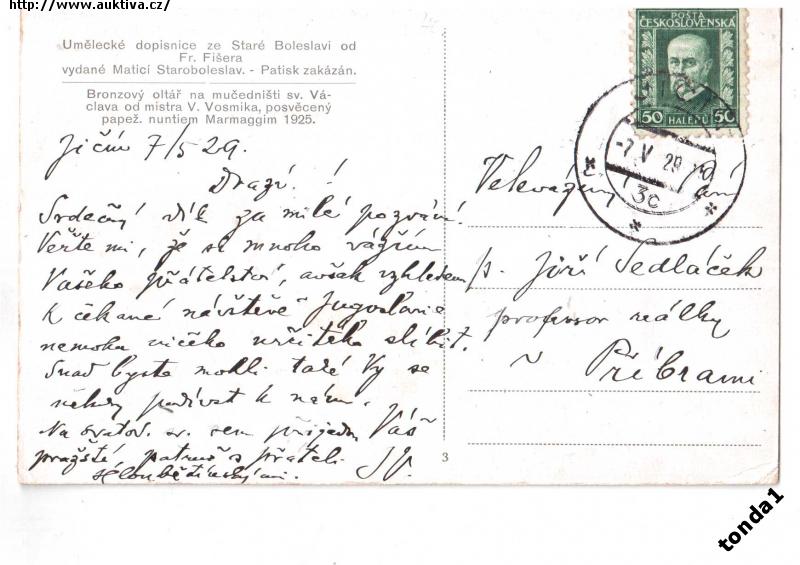 http://www.auktiva.cz/
Umělecké dopisnice ze Staré Boleslavi od
Fr. Fišera
vydané Maticí Staroboleslav. - Patisk zakázán.
Bronzový oltář na mučedništi sv. Vá-
clava od mistra V. Vosmíka, posvěcený
papež. nuntiem Marmaggim 1925.
POŠTA
ČESKOSLOVENSKÁ
50 HALÉŘŮ 50
-7.V 29
3c
Jičín 7/5 29.
Drazí!
Srdečný dík za milé pozvání.
Věřte mi, že si mnoho vážím
Vašeho přátelství, avšak vzhledem
k čekané návštěvě z Jugoslavie
nemohu ničeho určitého slíbit.
Snad byste mohli také Vy se
někdy podívat k nám.
Na svatod. sv. sem přijedou Váš
pražští přáteli
Velevážený pán
p. Jiří Sedláček
professor reálky
v Příbrami
3
tonda1